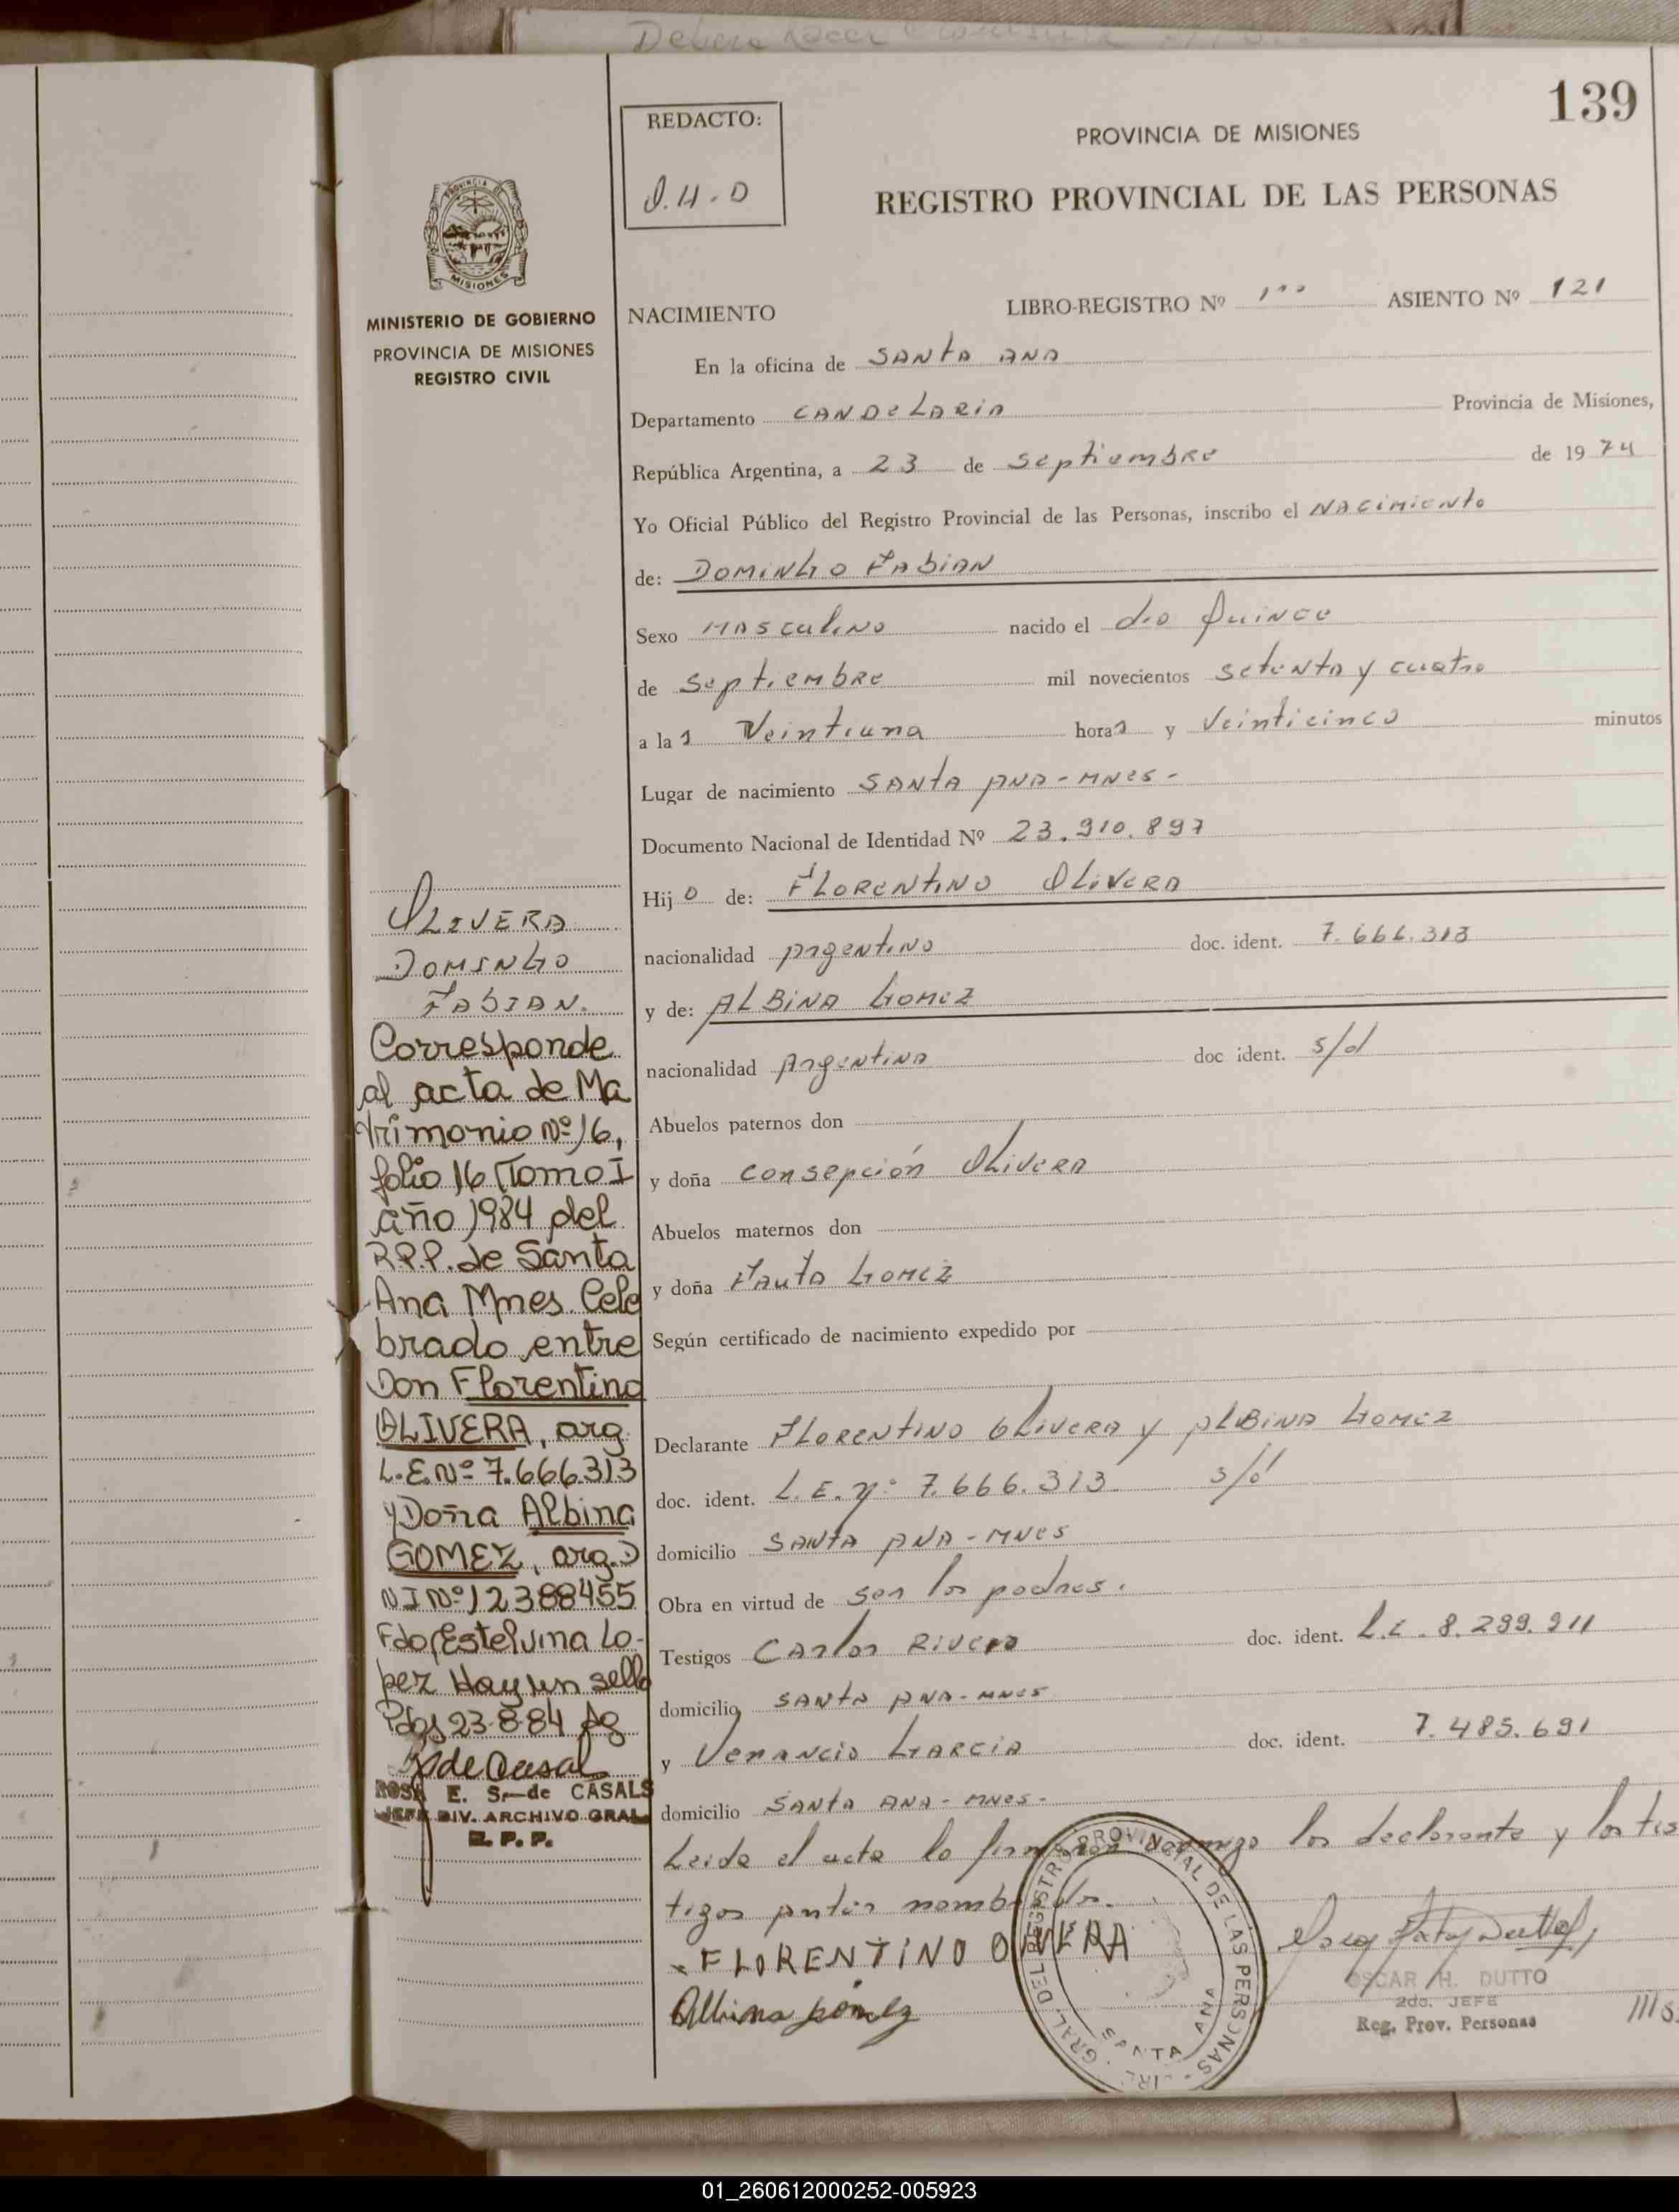 139
REDACTO:
O.H.D
PROVINCIA DE MISIONES
REGISTRO PROVINCIAL DE LAS PERSONAS
MISIONES
MINISTERIO DE GOBIERNO
PROVINCIA DE MISIONES
REGISTRO CIVIL
NACIMIENTO LIBRO-REGISTRO Nº 1 ASIENTO Nº 121
En la oficina de SANTA ANA
Departamento CANDELARIA Provincia de Misiones,
República Argentina, a 23 de septiembre de 1974
Yo Oficial Público del Registro Provincial de las Personas, inscribo el NACIMIENTO
de: DOMINGO FABIAN
Sexo MASCULINO nacido el día Quince
de septiembre mil novecientos setenta y cuatro
a las Veintiuna horas y Veinticinco minutos
Lugar de nacimiento SANTA ANA - MNES -
Documento Nacional de Identidad Nº 23.910.897
Hijo de: FLORENTINO OLIVERA
nacionalidad Argentino doc. ident. 7.666.313
y de: ALBINA GOMEZ
nacionalidad Argentina doc ident. s/d
Abuelos paternos don
y doña Consepción Olivera
Abuelos maternos don
y doña Fauta Gomez
Según certificado de nacimiento expedido por
Declarante FLORENTINO OLIVERA y ALBINA GOMEZ
doc. ident. L.E.Nº 7.666.313 s/d
domicilio SANTA ANA - MNES
Obra en virtud de ser los padres.
Testigos Carlos Rivero doc. ident. L.E. 8.299.911
domicilio SANTA ANA - MNES
y Venancio Garcia doc. ident. 7.485.691
domicilio SANTA ANA - MNES -
Leida el acta la firmaron conmigo los declarante y los tes
tigos antes nombrados.
FLORENTINO OLIVERA
Albina Gomez
OSCAR H. DUTTO
2do. JEFE
Reg. Prov. Personas
GRAL. DEL REGISTRO PROVINCIAL DE LAS PERSONAS
SANTA ANA
OLIVERA
DOMINGO
FABIAN.
Corresponde
al acta de Ma
trimonio Nº 16,
folio 16 Tomo I
año 1984 del
R.P.P. de Santa
Ana Mnes. Cele
brado entre
Don Florentino
OLIVERA, arg.
L.E.Nº 7.666.313
y Doña Albina
GOMEZ, arg. D
NI Nº 12388455
Fdo, Estelvina Lo-
pez Hay un sello
Pdas 23-8-84
ROSA E. S. de CASALS
JEFE DIV. ARCHIVO GRAL
R. P. P.
01_260612000252-005923